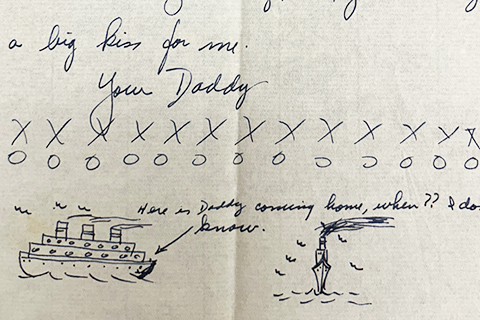 a big kiss for me.
Your Daddy
X X X X X X X X X X X X X
O O O O O O O O O O O O O
Here is Daddy coming home, when?? I do
know.